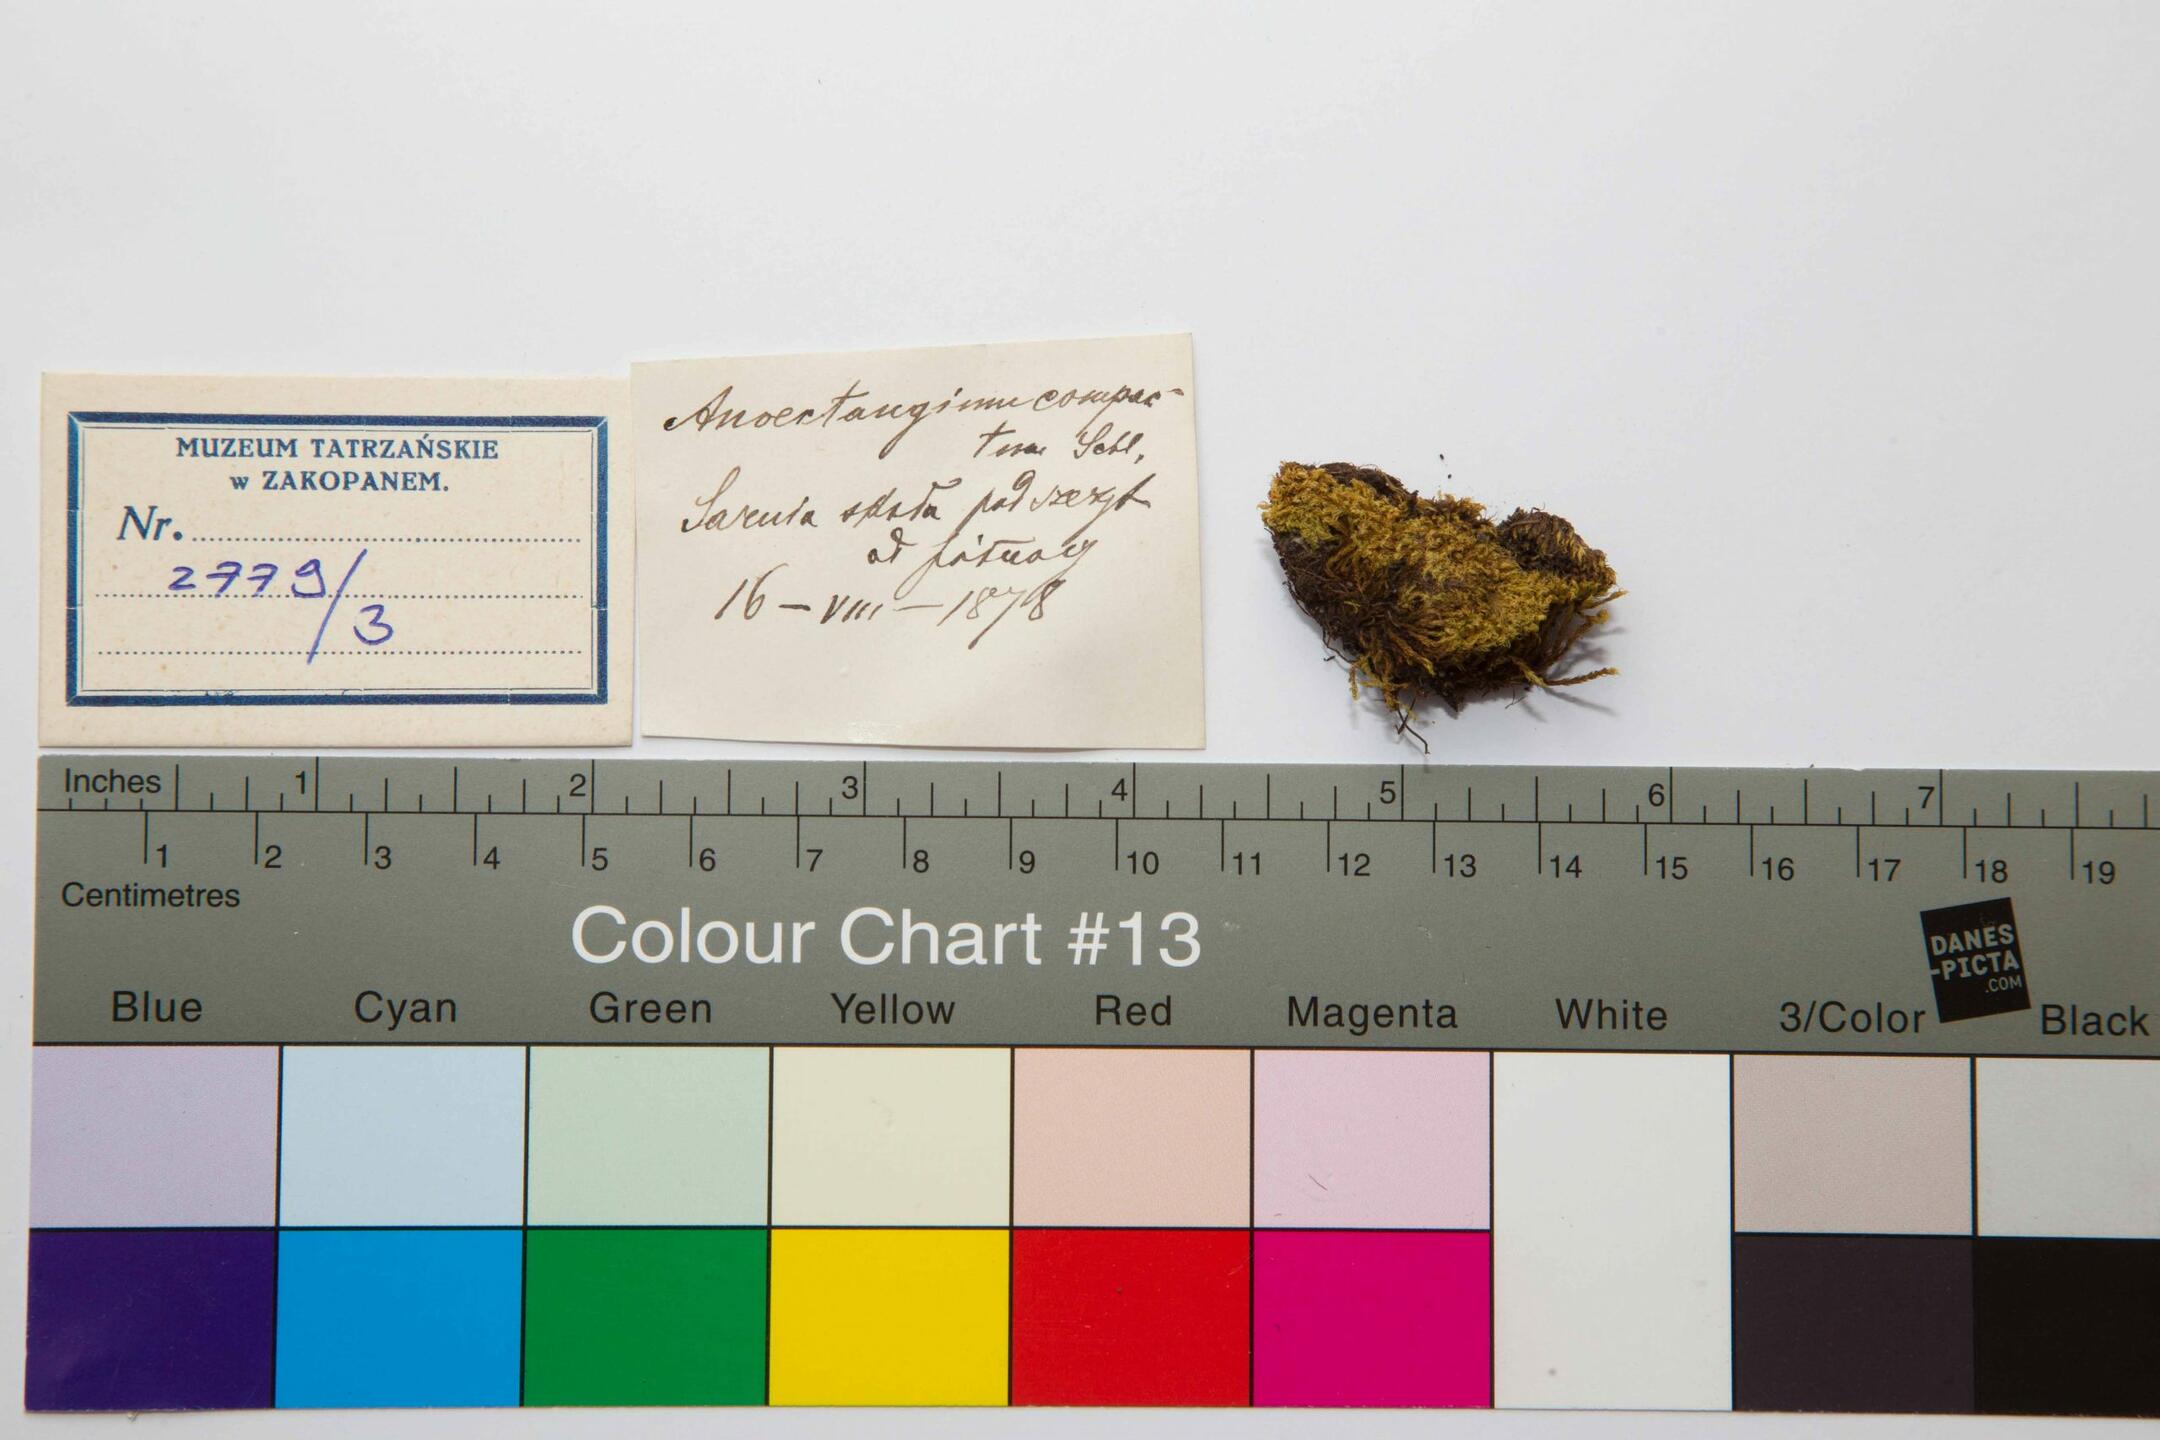 MUZEUM TATRZAŃSKIE
w ZAKOPANEM.
Nr.
2779/3
Anoectangium compac-
tum Schl.
Sarnia skała pod szczyt
od północy
16 - VIII - 1878
Inches 1 2 3 4 5 6 7
1 2 3 4 5 6 7 8 9 10 11 12 13 14 15 16 17 18 19
Centimetres
Colour Chart #13
DANES
-PICTA
.COM
Blue Cyan Green Yellow Red Magenta White 3/Color Black